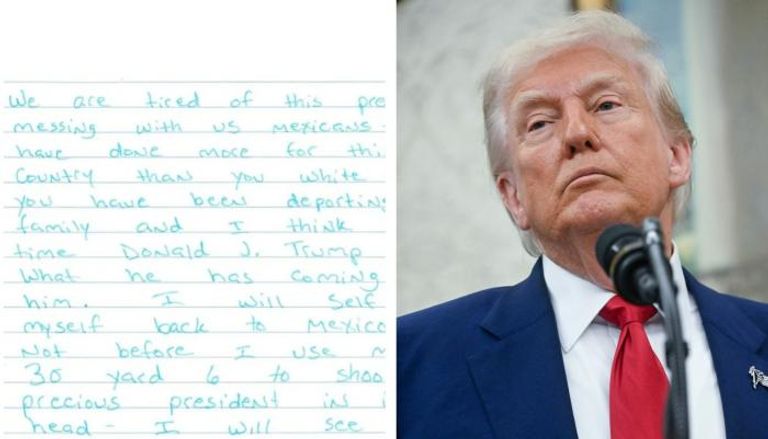 We are tired of this pre
messing with us mexicans.
have done more for thi
Country than you white
you have been deporting
family and I think
time Donald J. Trump
What he has coming
him. I will self
myself back to Mexico
Not before I use
30 yard 6 to shoo
precious president in i
head - I will see